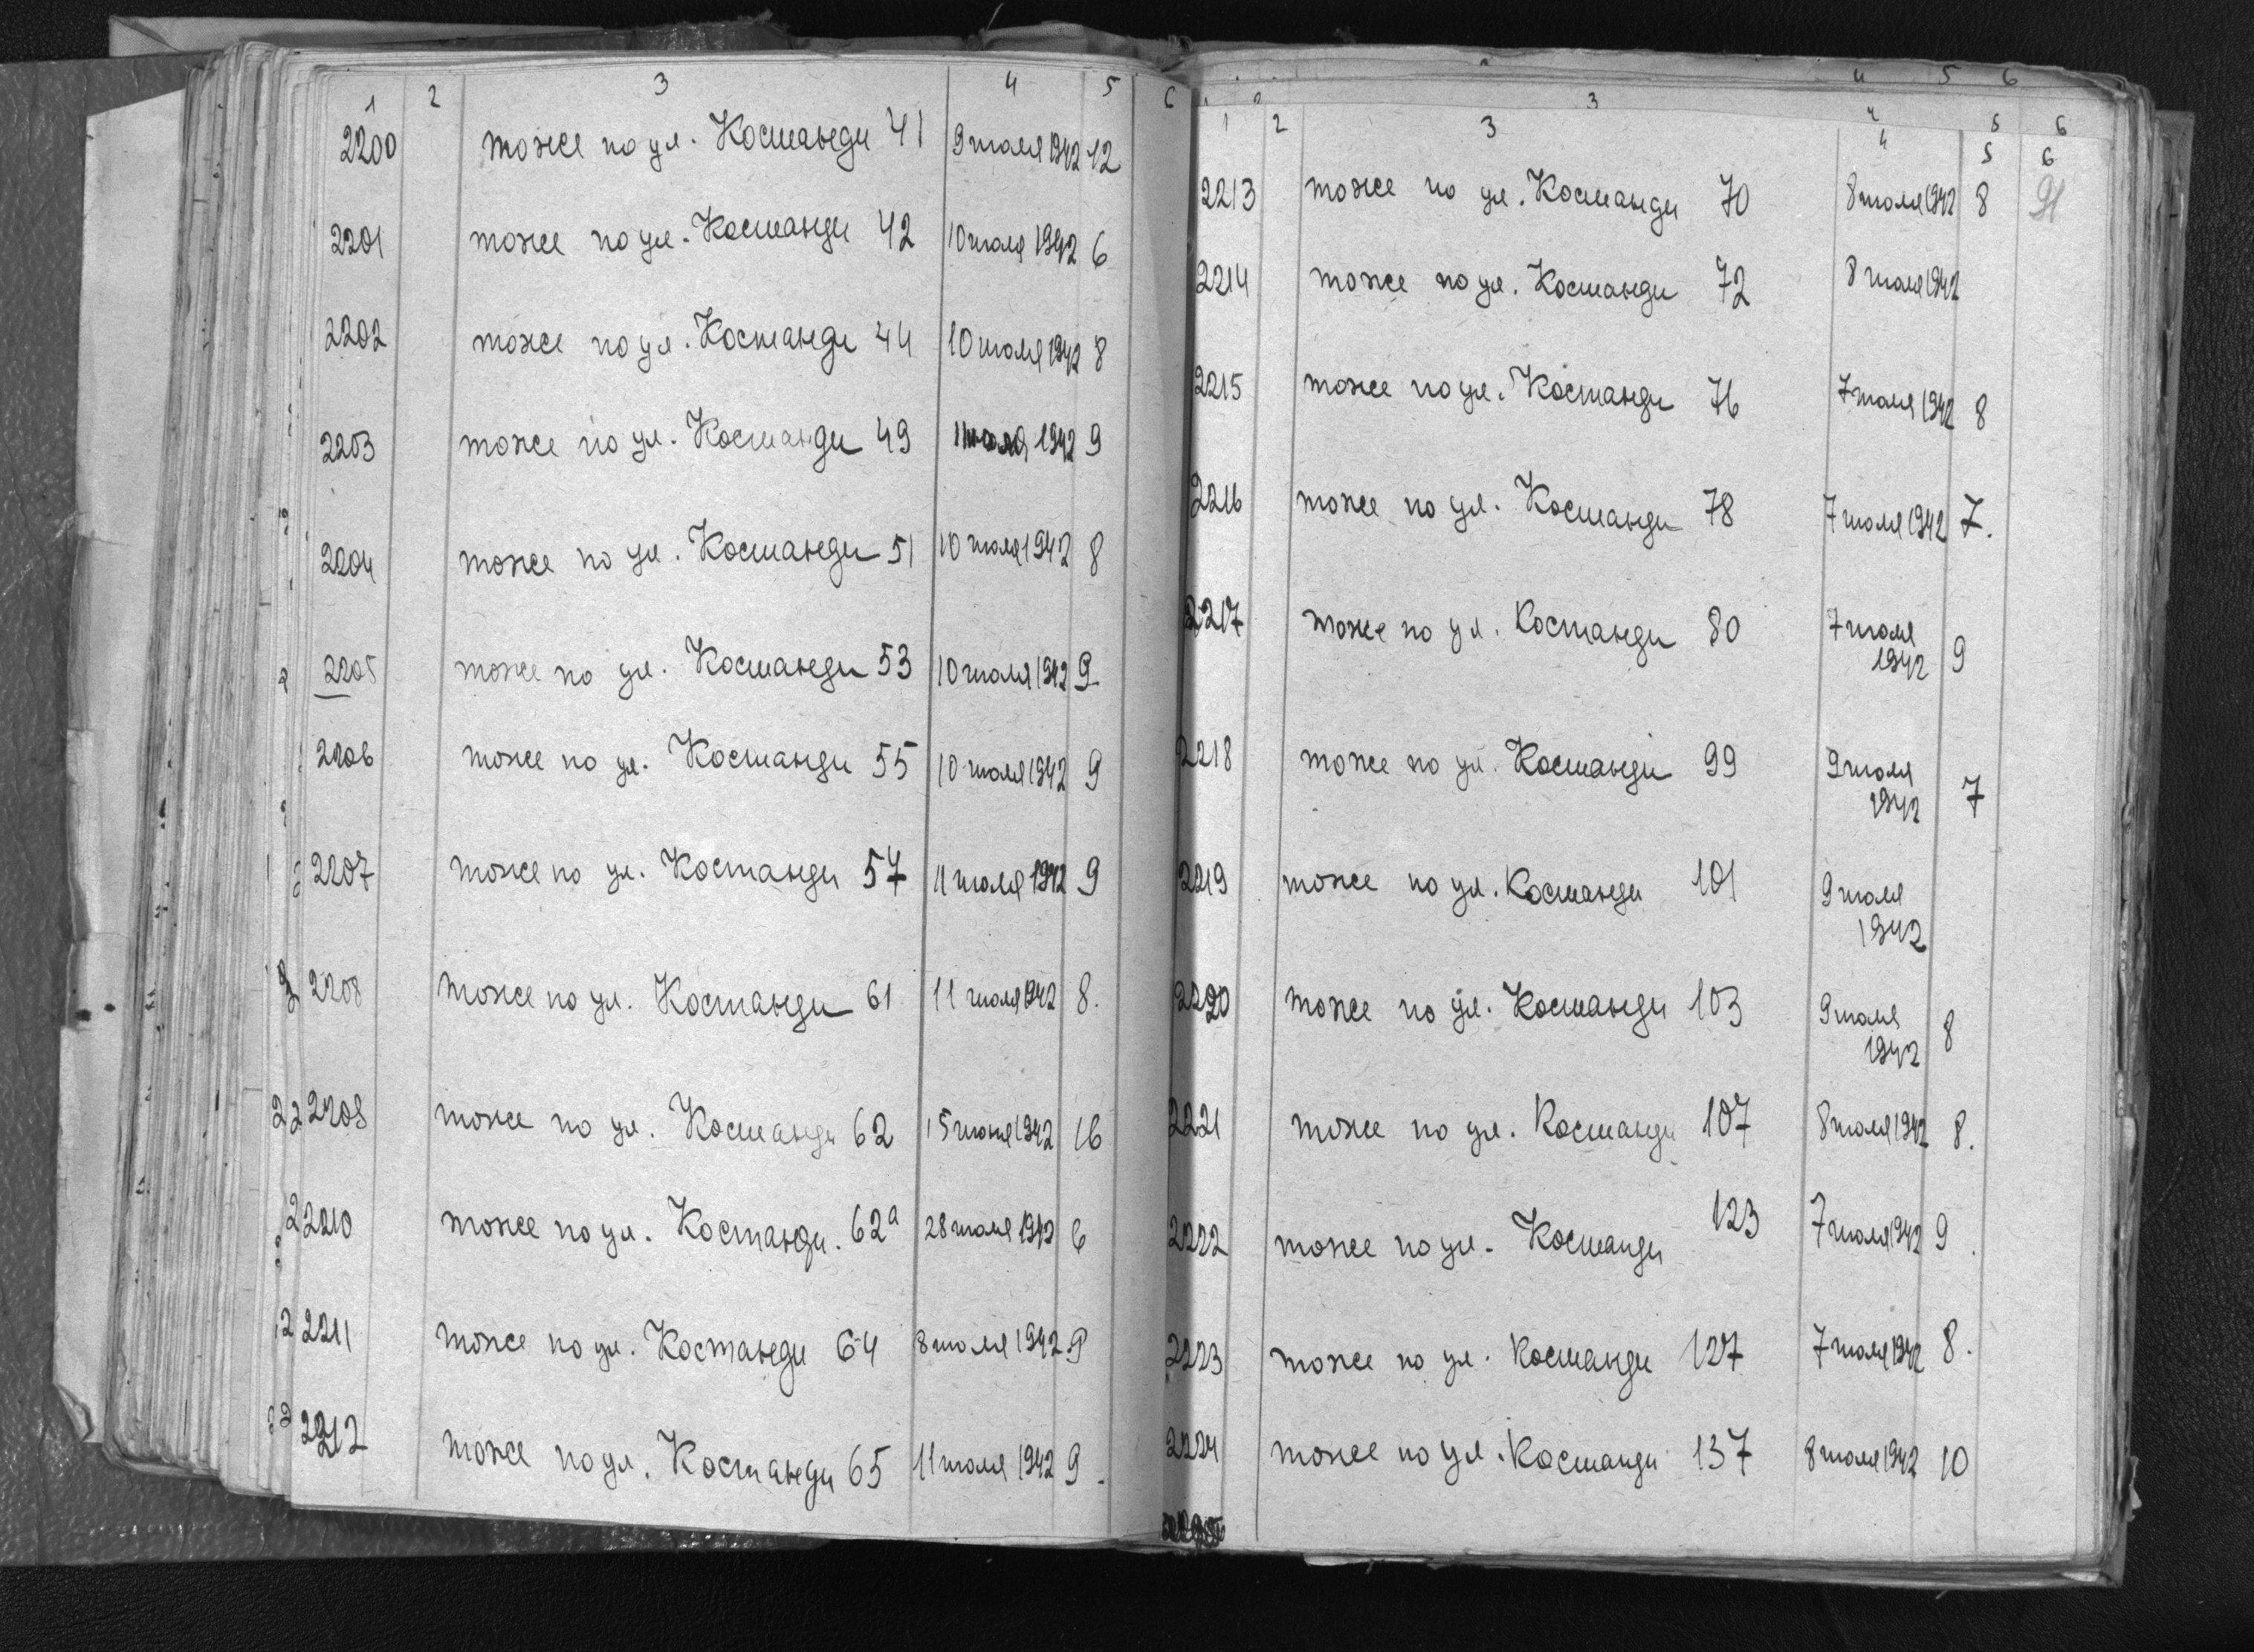 1 2 3 4 5 6
2200 тоже по ул. Костанди 41 9 июля 1942 12
2201 тоже по ул. Костанди 42 10 июля 1942 6
2202 тоже по ул. Костанди 44 10 июля 1942 8
2203 тоже по ул. Костанди 49 11 июля 1942 9
2204 тоже по ул. Костанди 51 10 июля 1942 8
2205 тоже по ул. Костанди 53 10 июля 1942 9
2206 тоже по ул. Костанди 55 10 июля 1942 9
2207 тоже по ул. Костанди 57 11 июля 1942 9
2208 тоже по ул. Костанди 61 11 июля 1942 8.
2209 тоже по ул. Костанди 62 15 июня 1942 16
2210 тоже по ул. Костанди. 62а 28 июля 1942 6
2211 тоже по ул. Костанди 64 8 июля 1942 9
2212 тоже по ул. Костанди 65 11 июля 1942 9.
4 5 6
3
1 2 3 4 5 6
5 6
2213 тоже по ул. Костанди 70 8 июля 1942 8 91
2214 тоже по ул. Костанди 72 8 июля 1942
2215 тоже по ул. Костанди 76 7 июля 1942 8
2216 тоже по ул. Костанди 78 7 июля 1942 7.
2217 тоже по ул. Костанди 80 7 июля
1942 9
2218 тоже по ул. Костанди 99 9 июля
1942 7
2219 тоже по ул. Костанди 101 9 июля
1942
2220 тоже по ул. Костанди 103 9 июля
1942 8
2221 тоже по ул. Костанди 107 8 июля 1942 8.
2222 тоже по ул. Костанди 123 7 июля 1942 9.
2223 тоже по ул. Костанди 127 7 июля 1942 8.
2224 тоже по ул. Костанди 137 8 июля 1942 10